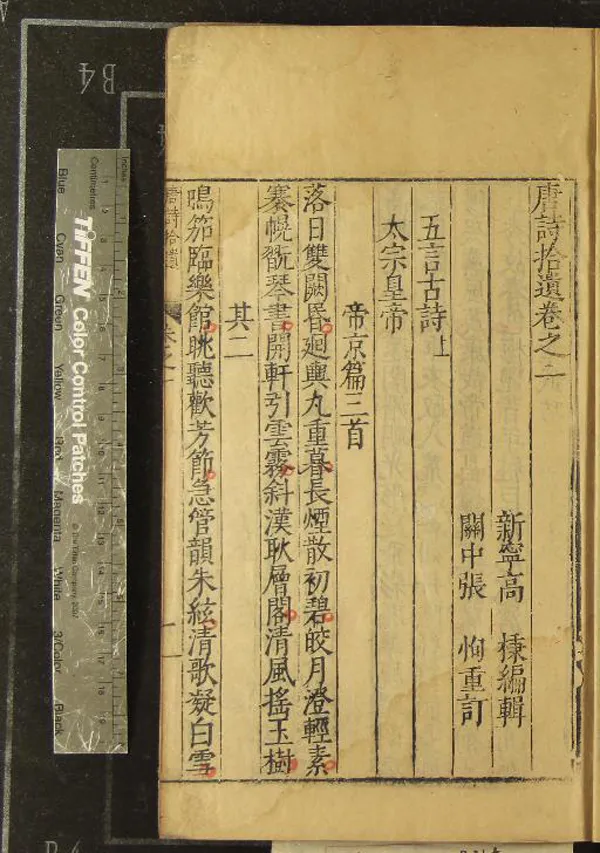 唐詩拾遺卷之一
新寧高　棅編輯
關中張　恂重訂
五言古詩上
太宗皇帝
帝京篇三首
落日雙闕昏廻輿九重暮長煙散初碧皎月澄輕素
褰幌翫琴書開軒引雲霧斜漢耿層閣清風搖玉樹
其二
鳴笳臨樂館眺聽歡芳節急管韻朱絃清歌凝白雪
唐詩拾遺
TIFFEN Color Control Patches
© The Tiffen Company, 2007
Inches
Centimetres
Blue Cyan Green Yellow Red Magenta White 3/Color Black
B4